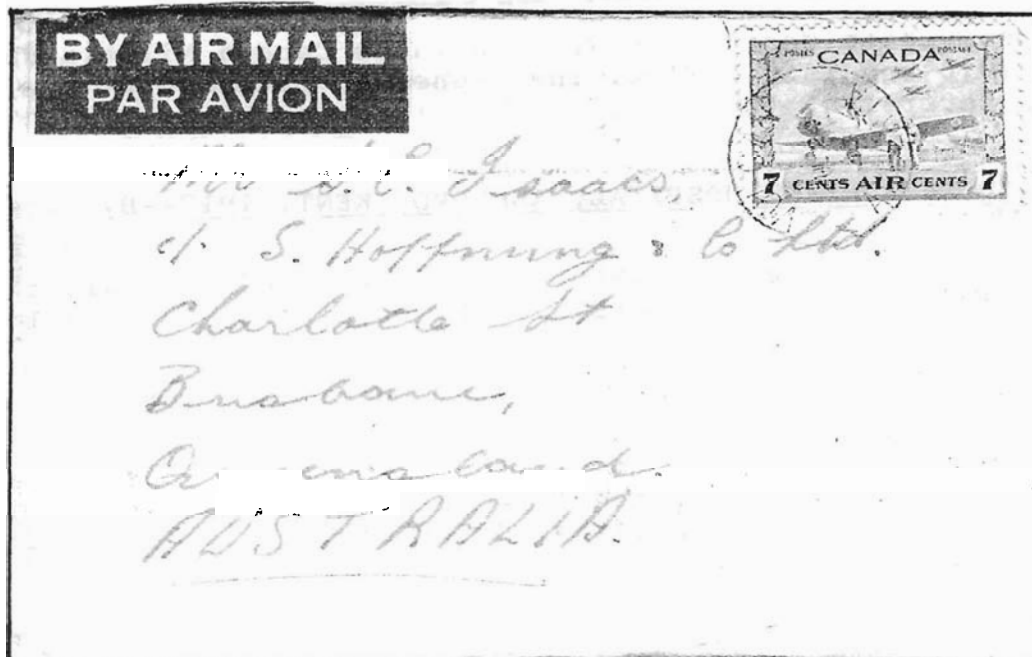 BY AIR MAIL
PAR AVION
POSTES CANADA POSTAGE
7 CENTS AIR CENTS 7
Isaacs
c/. S. Hoffnung & Co Ltd.
Charlotte St
Brisbane,
Queensland.
AUSTRALIA.